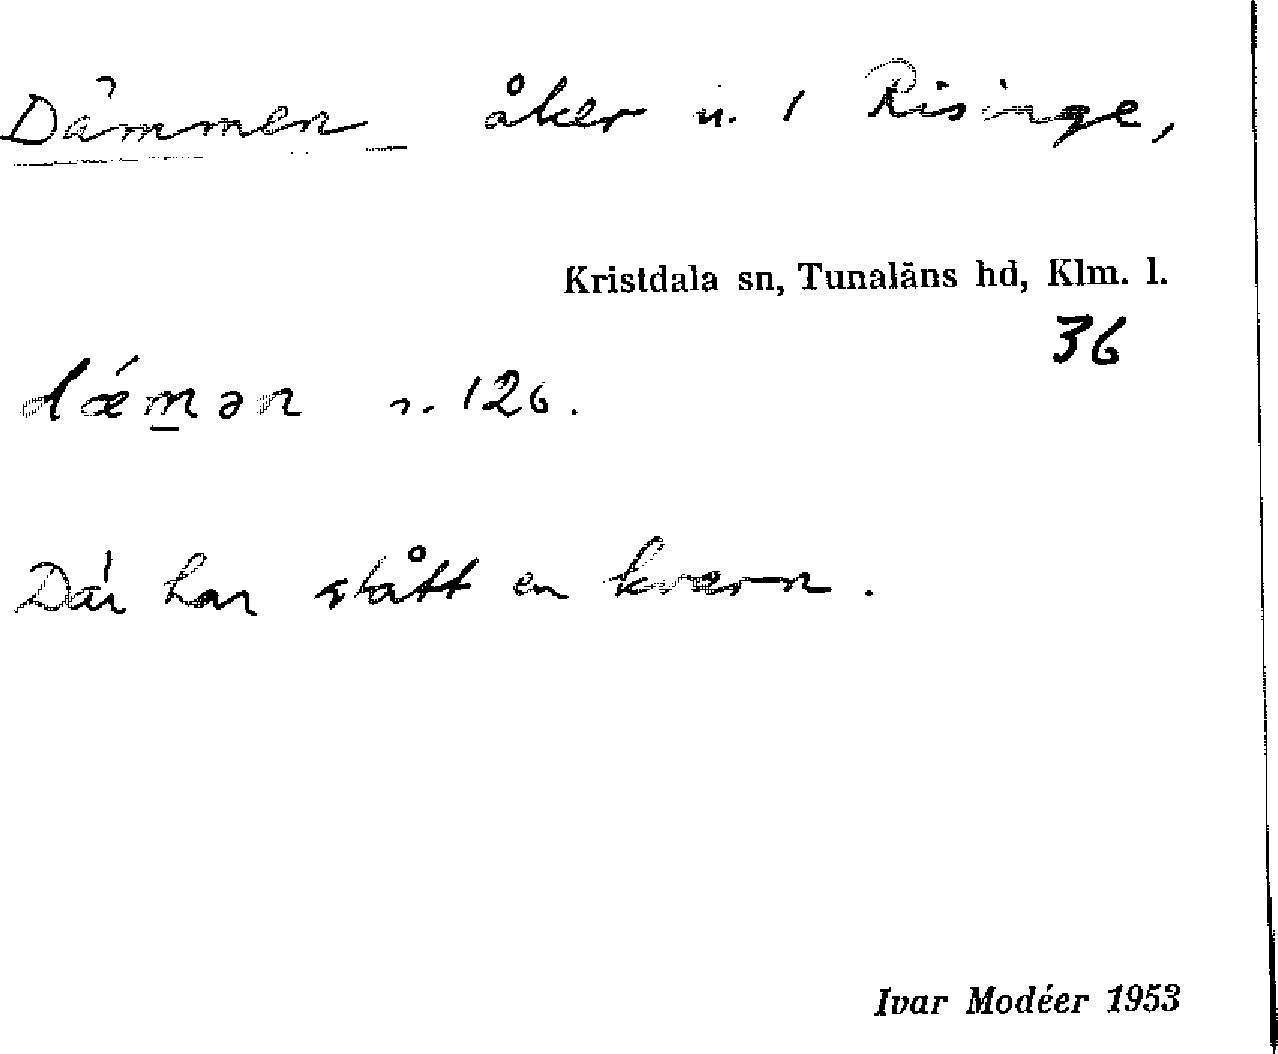 Dämmen åker u. 1 Risinge,
Kristdala sn, Tunaläns hd, Klm. l.
36
dǽm̲ən n. 126.
Där har stått en kvarn.
Ivar Modéer 1953